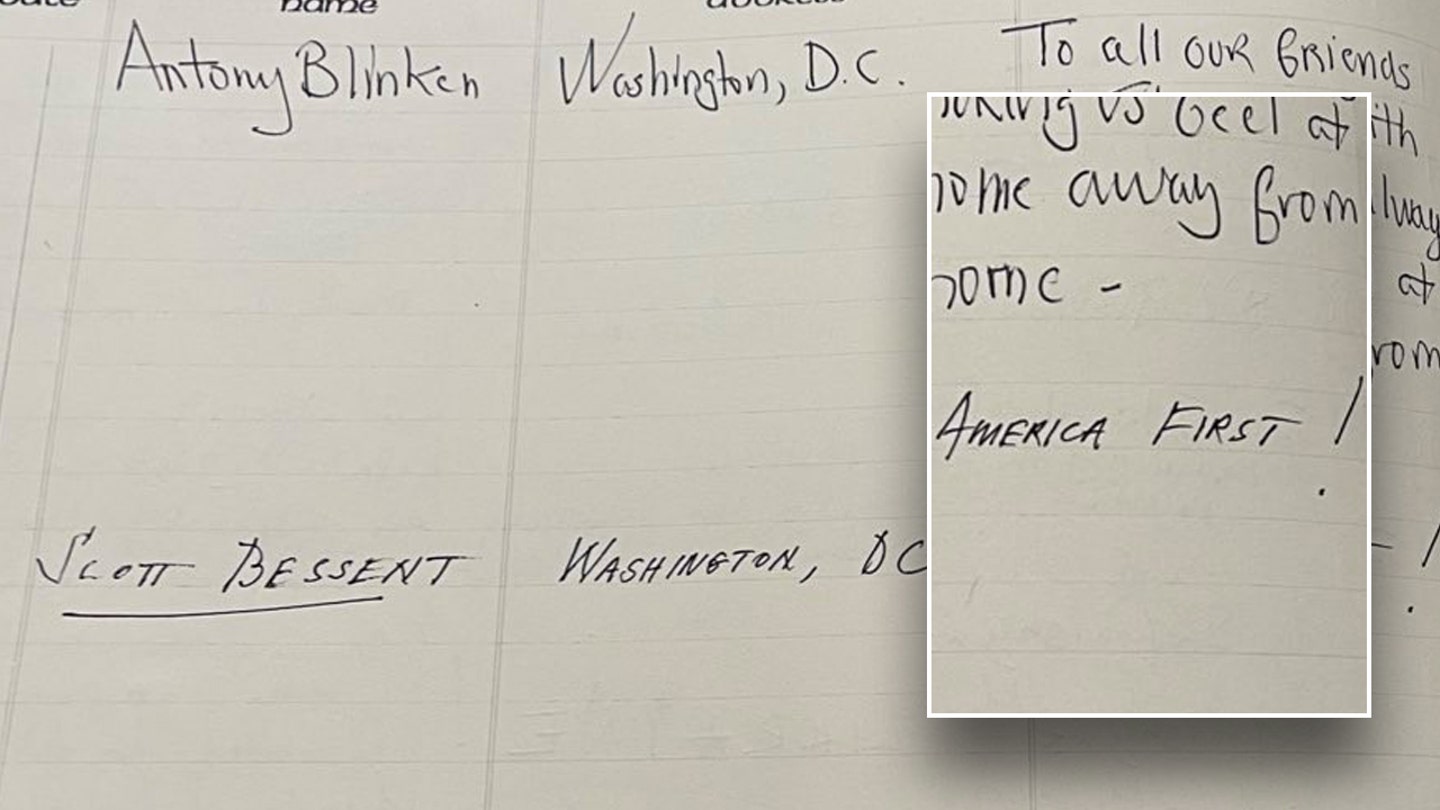 name address
Antony Blinken Washington, D.C. To all our friends
us feel at
home away from
home -
AMERICA FIRST!
at
SCOTT BESSENT WASHINGTON, DC